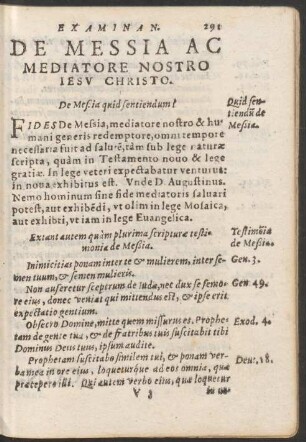 EXAMINAN. 291
DE MESSIA AC
MEDIATORE NOSTRO
IESV CHRISTO.
De Messia quid sentiendum?
Quid sen-
tiendũ de
Messia.
FIDES De Messia, mediatore nostro & hu
mani generis redemptore, omni tempore
necessaria fuit ad salutẽ, tàm sub lege naturæ
scripta, quàm in Testamento nouo & lege
gratiæ. In lege veteri expectabatur venturus:
in noua exhibitus est. Vnde D. Augustinus.
Nemo hominum sine fide mediatoris saluari
potest, aut exhibẽdi, vt olim in lege Mosaica,
aut exhibiti, vt iam in lege Euangelica.
Extant autem quàm plurima scripturæ testi-
monia de Messia.
Testimõia
de Messia.
Inimicitias ponam inter te & mulierem, inter se-
men tuum, & semen mulieris.
Gen. 3.
Non auferetur sceptrum de Iuda, nec dux de femo-
re eius, donec veniat qui mittendus est, & ipse erit
expectatio gentium.
Gen. 49.
Obsecro Domine, mitte quem missurus es. Prophe-
tam de gente tua, & de fratribus tuis suscitabit tibi
Dominus Deus tuus, ipsum audite.
Exod. 4.
Prophetam suscitabo similem tui, & ponam ver-
ba mea in ore eius, loqueturque ad eos omnia, quæ
præcepero illi. Qui autem verbo eius, quæ loquetur
Deut. 18.
V 3